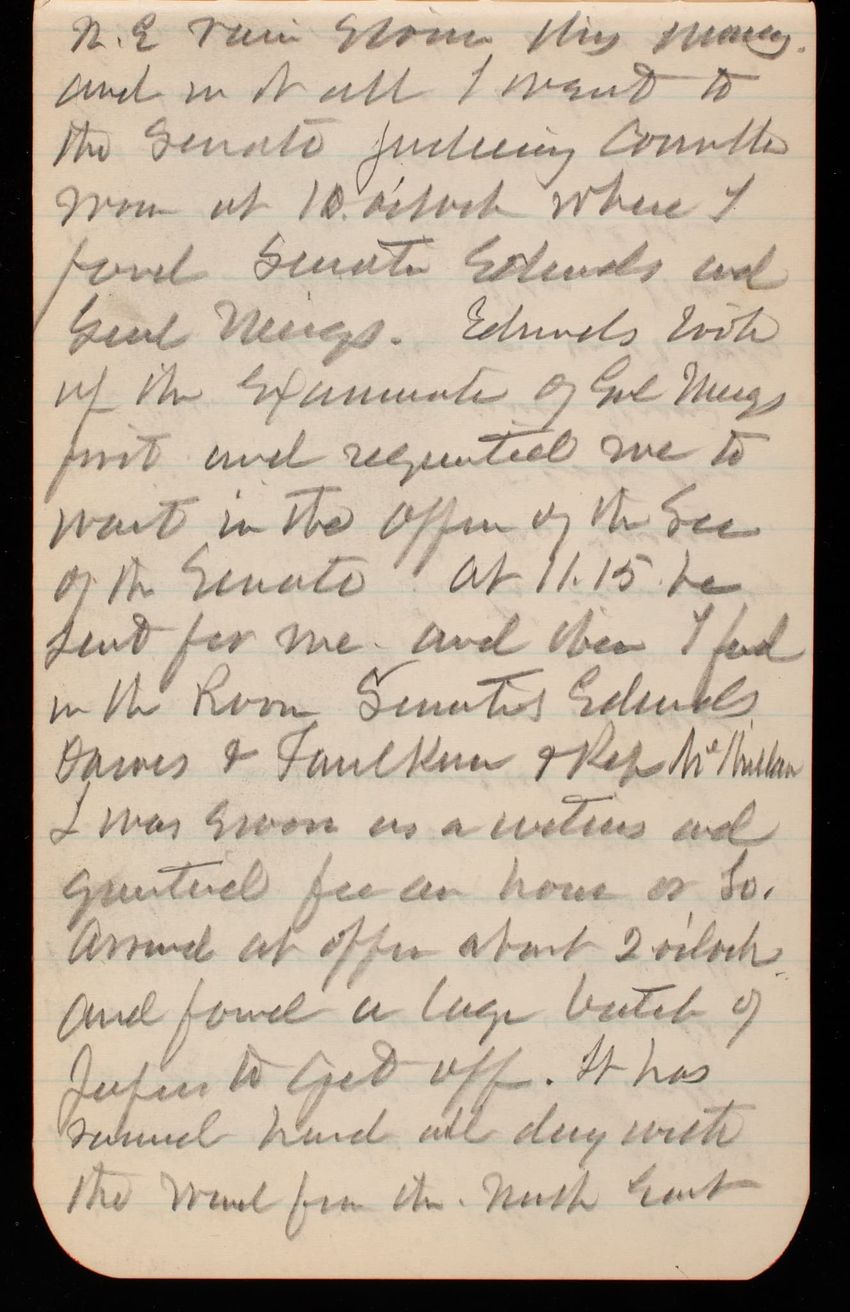 N.E rain storm this morning.
and in it all I went to
the Senate Judiciary Committee
room at 10. o'clock where I
found Senator Edmunds and
Genl Meigs. Edmunds took
up the Examination of Genl Meigs
first and requested me to
wait in the office of the Sec
of the Senate. At 11.15 he
sent for me and then I found
in the Room Senators Edmunds
Dawes & Faulkner & Rep McMillan
I was sworn as a witness and
questioned for an hour or so.
Arrived at office about 2 o'clock
and found a large batch of
papers to get off. It has
rained hard all day with
the wind from the North East